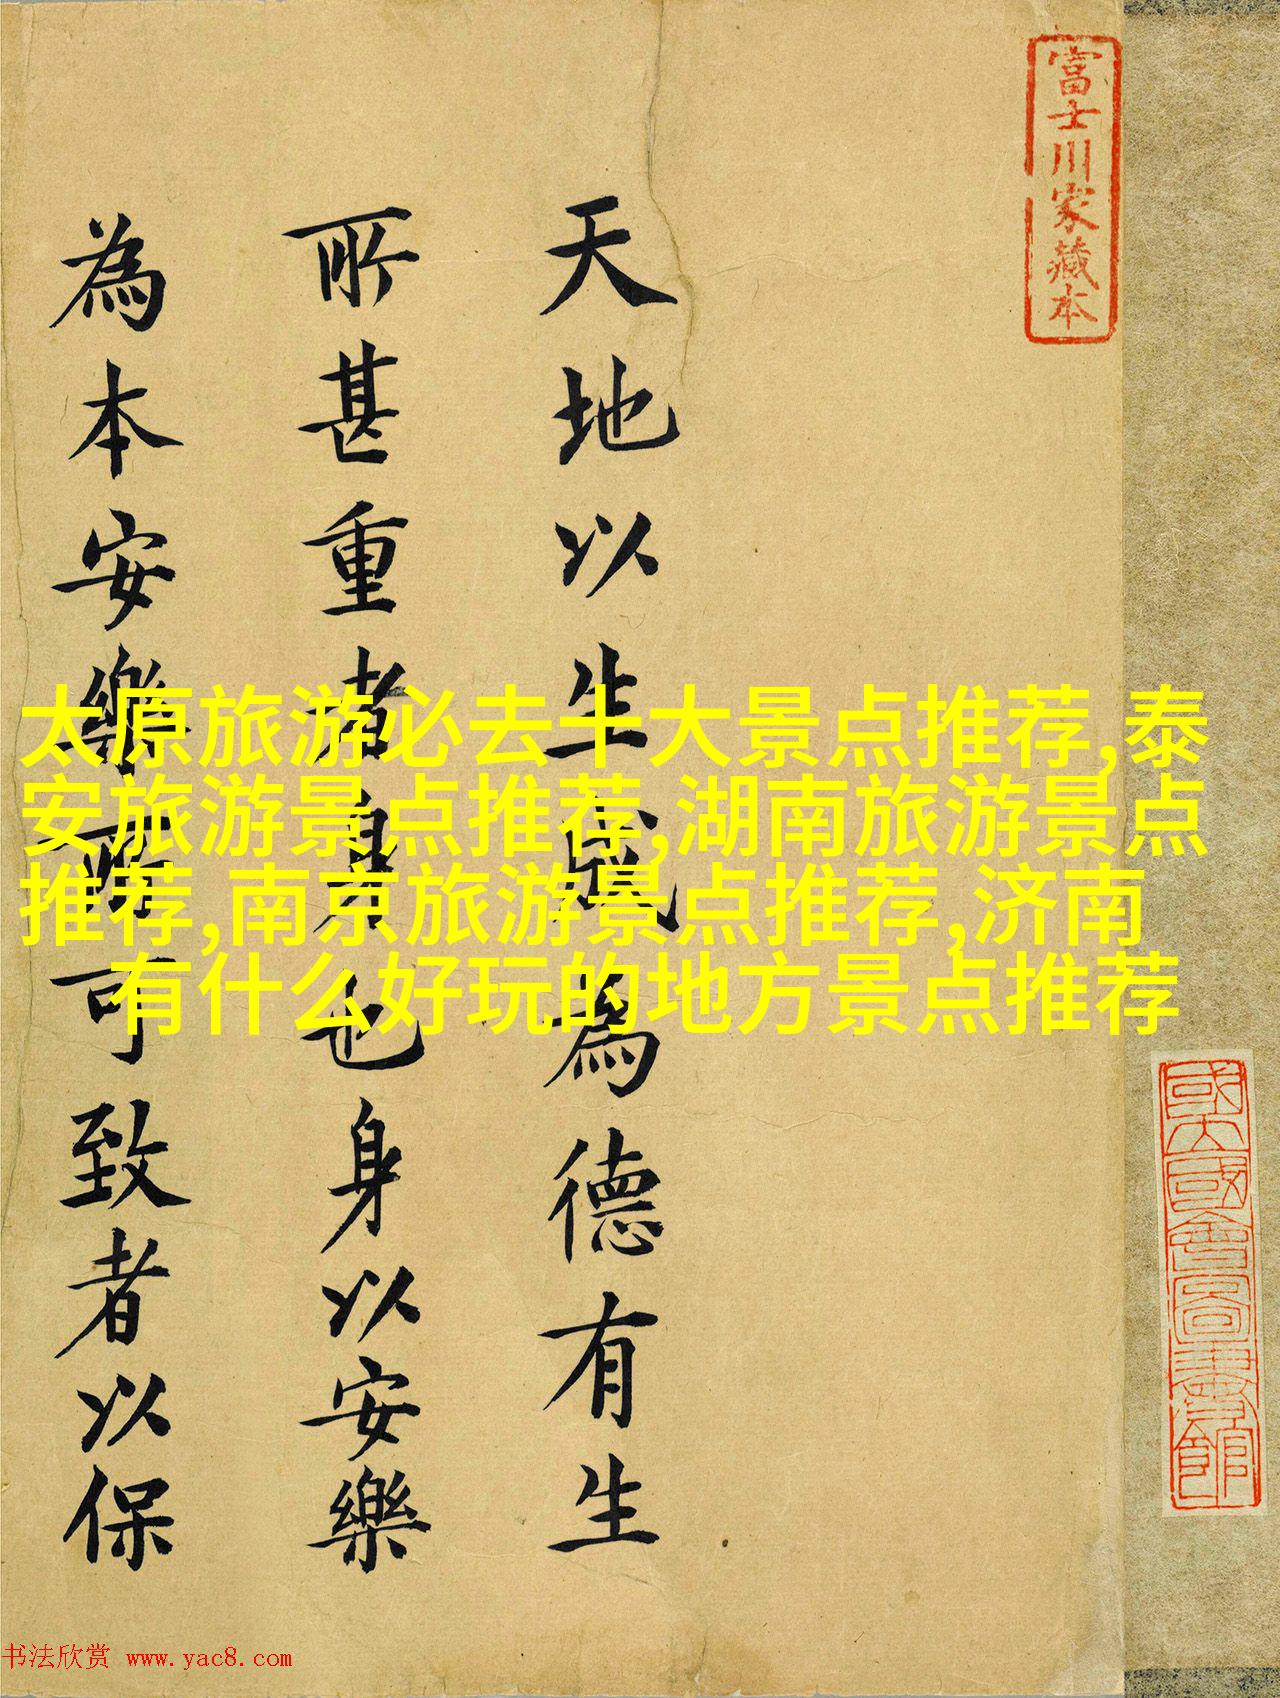 富士川家藏本
國立國會圖書館
天地以生成為德有生
所甚重者身也身以安樂
為本安樂所可致者以保
太原旅游必去十大景点推荐,泰
安旅游景点推荐,湖南旅游景点
推荐,南京旅游景点推荐,济南
有什么好玩的地方景点推荐
书法欣赏 www.yac8.com